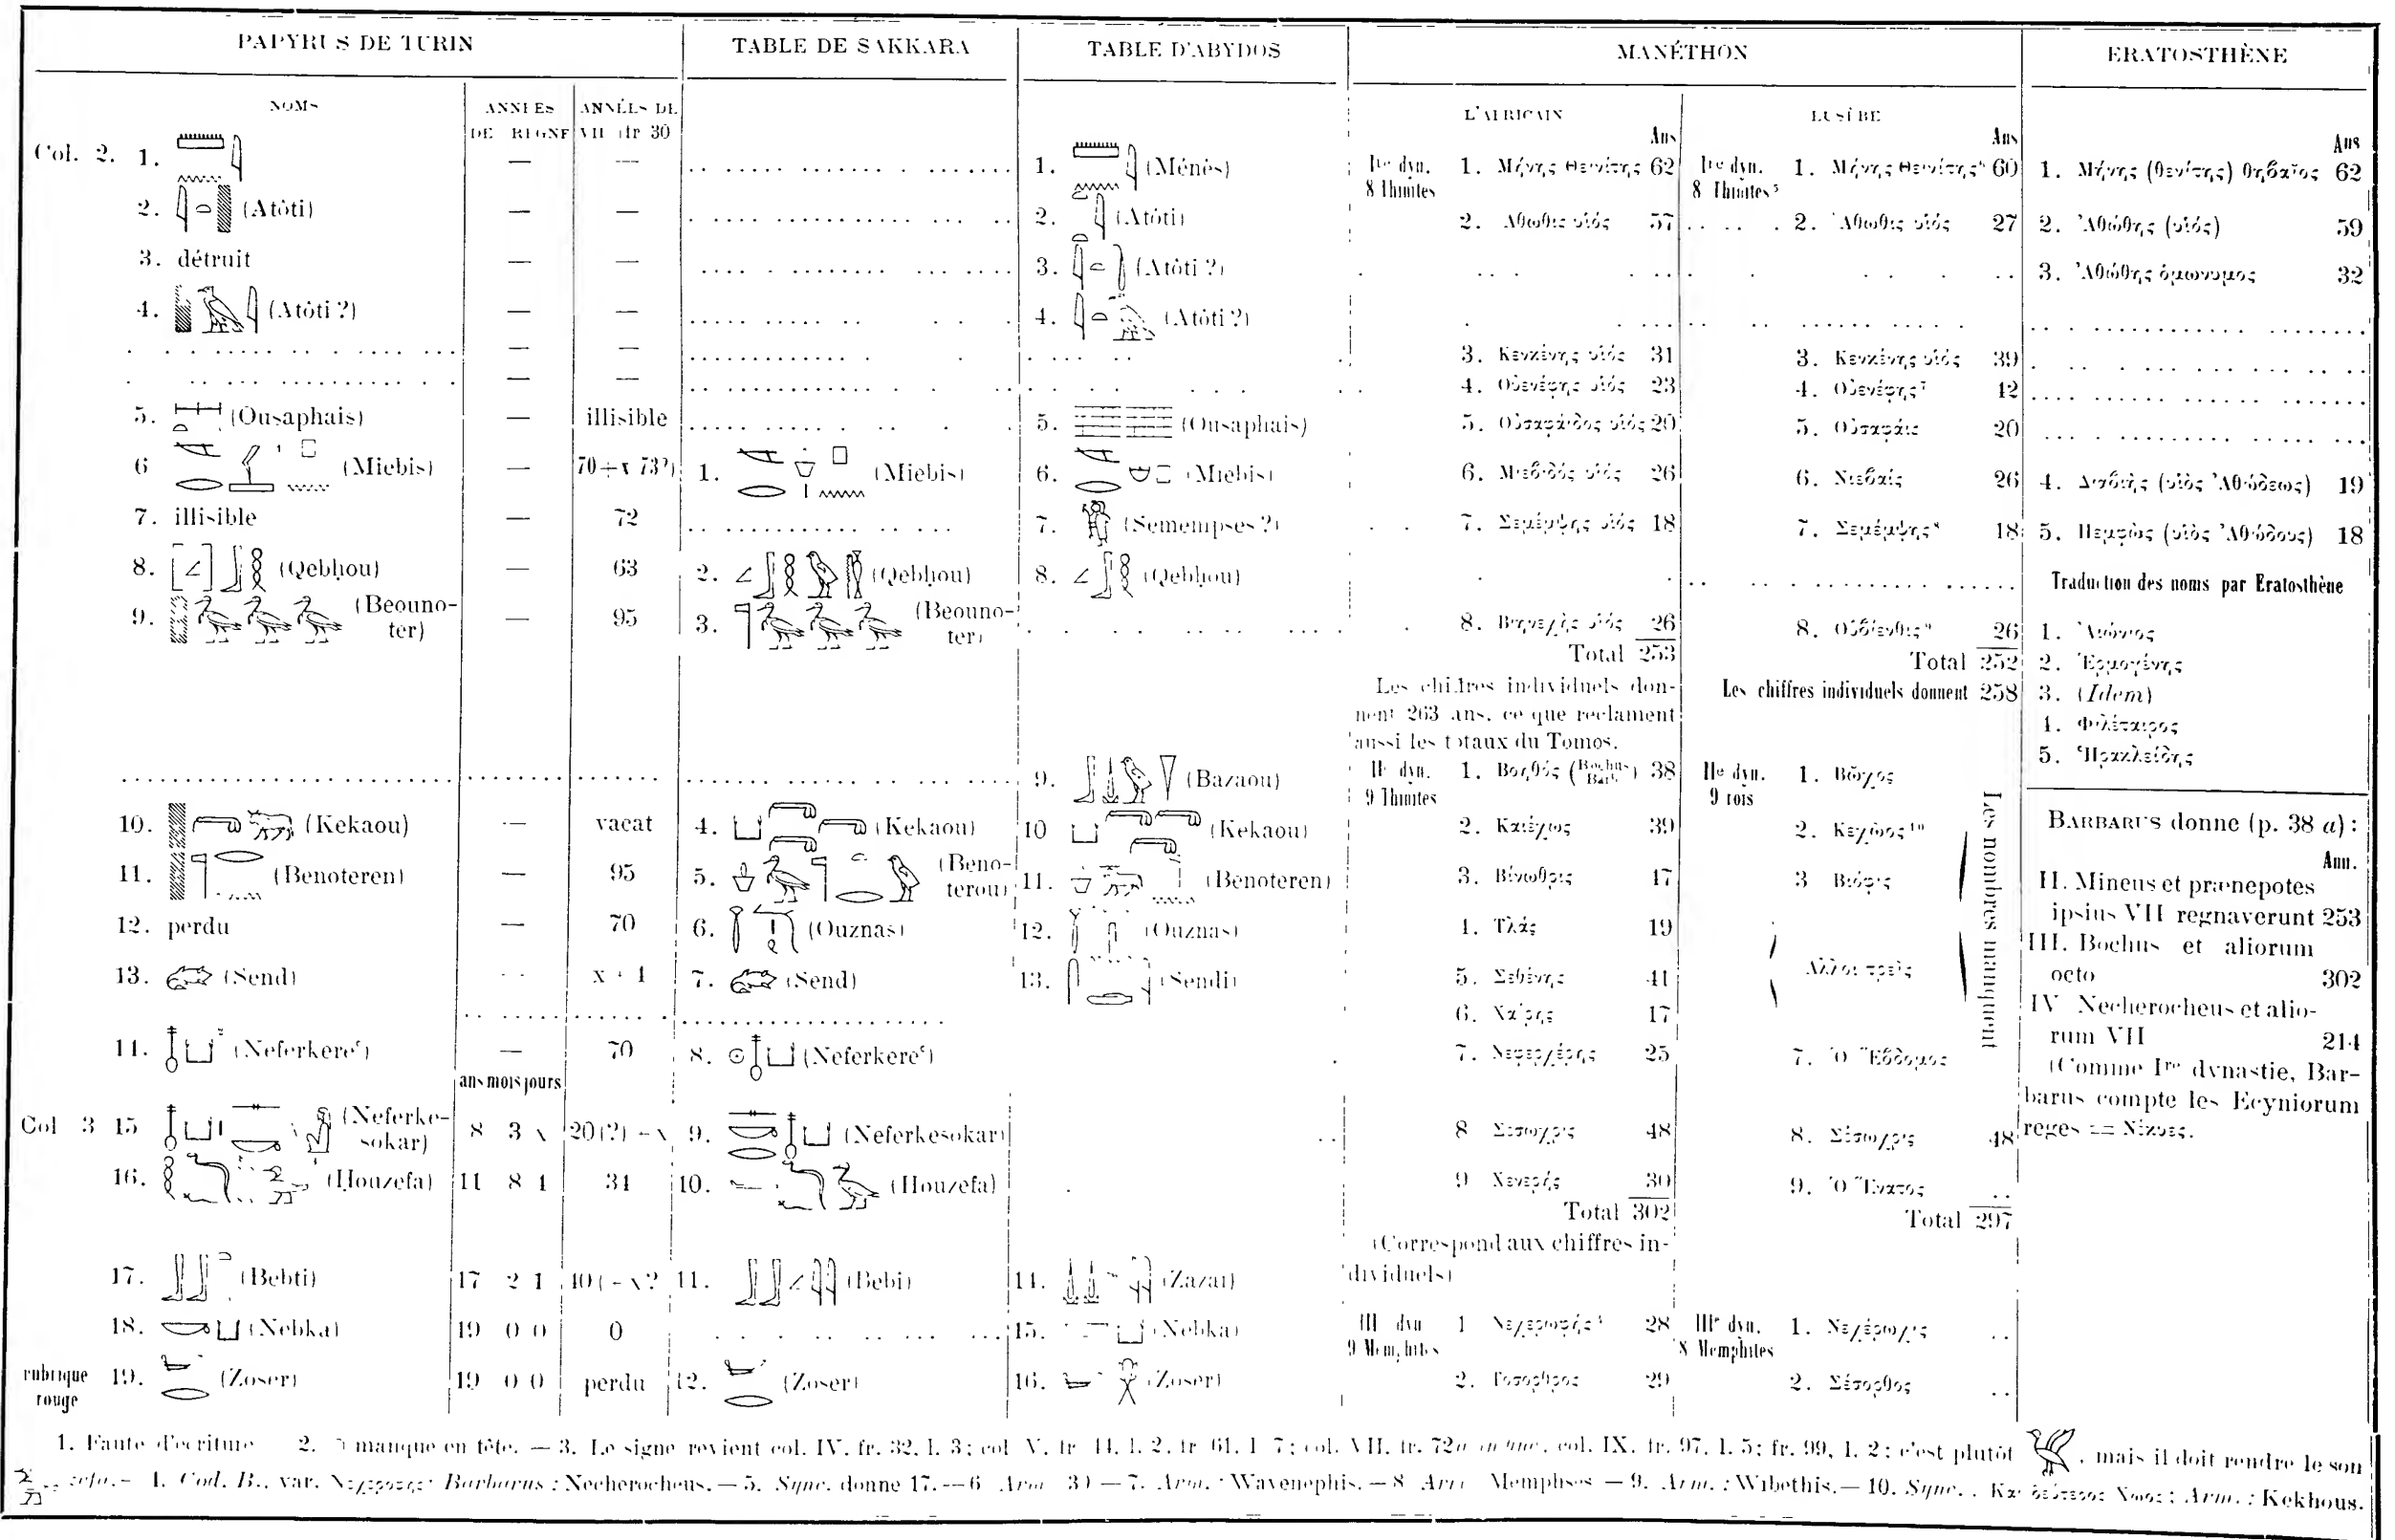 PAPYRUS DE TURIN
NOMS
ANNÉES DE RÈGNE
ANNÉES DE VIE (fr 30
Col. 2. 1. — —
2. (Atôti) — —
3. détruit — —
4. (Atôti ?) — —
5. (Ousaphais) — illisible
6 (Miebis) — 70 + x 73?)
7. illisible — 72
8. (Qebḥou) — 63
9. (Beouno-
ter) — 95
10. (Kekaou) — vacat
11. (Benoteren) — 95
12. perdu — 70
13. (Send) x + 1
14. (Neferkereʿ) — 70
ans mois jours
Col 3 15 (Neferke-
sokar) 8 3 x 20(?) - x
16. (Ḥouzefa) 11 8 4 34
17. (Bebti) 17 2 1 40 ( - x ?
18. (Nebka) 19 0 0 0
rubrique
rouge
19. (Zoser) 19 0 0 perdu
TABLE DE SAKKARA
1. (Miebis)
2. (Qebḥou)
3. (Beouno-
ter)
4. (Kekaou)
5. (Beno-
terou)
6. (Ouznas)
7. (Send)
8. (Neferkereʿ)
9. (Neferkesokar)
10. (Houzefa)
11. (Bebi)
12. (Zoser)
TABLE D'ABYDOS
1. (Ménès)
2. (Atôti)
3. (Atôti ?)
4. (Atôti ?)
5. (Ousaphais)
6. (Miebis)
7. (Semempses ?)
8. (Qebḥou)
9. (Bazaou)
10 (Kekaou)
11. (Benoteren)
12. (Ouznas)
13. (Sendi)
14. (Zazai)
15. (Nebka)
16. (Zoser)
MANÉTHON
L'AFRICAIN
Ans
Ire dyn.
8 Thinites
1. Μήνης Θεινίτης 62
2. Αθωθις υἱός 57
3. Κενκένης υἱός 31
4. Οὐενέφης υἱός 23
5. Οὐσαφάιδος υἱός 20
6. Μιεβιδός υἱός 26
7. Σεμέμψης υἱός 18
8. Βιηνεχὴς υἱός 26
Total 253
Les chiffres individuels don-
nent 263 ans, ce que réclament
aussi les totaux du Tomos.
IIe dyn.
9 Thinites
1. Βοηθός (Bochus Barb.) 38
2. Καιέχως 39
3. Βίνωθρις 47
4. Τλάς 19
5. Σεθένης 41
6. Χαίρης 17
7. Νεφερχέρης 25
8 Σεσωχρις 48
9 Χενερής 30
Total 302
(Correspond aux chiffres in-
dividuels)
III dyn
9 Memphites
1 28
2. Τοσορθρος 29
EUSÈBE
Ans
Ire dyn.
8 Thinites 5
1. Μήνης Θεινίτης 6 60
2. Ἀθωθις υἱός 27
3. Κενκένης υἱός 39
4. Οὐενέφης 7 42
5. Οὐσαφάις 20
6. Νιεβαίς 26
7. Σεμέμψης 8 18
8. Οὐβίενθις 9 26
Total 252
Les chiffres individuels donnent 258
IIe dyn.
9 rois
1. Βῶχος
2. Κεχῶος 10
3 Βιόφις
Αλλοι τρεῖς
7. Ὁ Ἕβδομος
8. Σέσωχρις 48
9. Ὁ Ἔνατος ..
Total 297
Les nombres manquent
IIIe dyn.
8 Memphites
1. Νεχέρωχις ..
2. Σέσορθος ..
ERATOSTHÈNE
Ans
1. Μήνης (θενίτης) θηβαῖος 62
2. Ἀθώθης (υἱός) 59
3. Ἀθώθης ὁμώνυμος 32
4. Διαβιὴς (υἱὸς Ἀθώθεως) 19
5. Πεμφὼς (υἱὸς Ἀθώδους) 18
Traduction des noms par Eratosthène
1. Αἰώνιος
2. Ἑρμογένης
3. (Idem)
4. Φιλέταιρος
5. Ἡρακλείδης
BARBARUS donne (p. 38 a) :
Ann.
II. Mineus et prænepotes
ipsius VII regnaverunt 253
III. Bochus et aliorum
octo 302
IV Necherocheus et alio-
rum VII 214
(Comme Ire dynastie, Bar-
barus compte les Ecyniorum
reges = Νέκυες.
1. Faute d'écriture 2. manque en tête. — 3. Le signe revient col. IV. fr. 32, l. 3; col V. fr 44, l. 2, fr 61, l 7; col. VII. fr. 72 col. IX. fr. 97, l. 5; fr. 99, l. 2; c'est plutôt , mais il doit rendre le son
zefa. - 4. Cod. B., var. Barbarus : Necherocheus. — 5. Sync. donne 17. -- 6 Arm — 7. Arm. : Wavenephis. — 8 Arm Memphses — 9. Arm. : Wibethis. — 10. Sync. . Arm. : Kekhous.